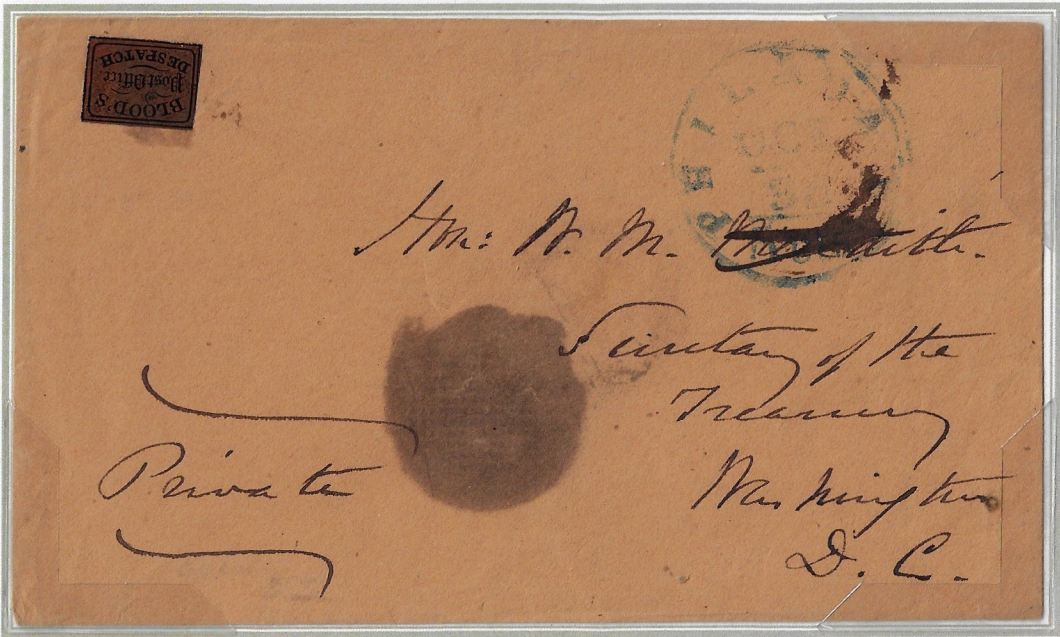 BLOOD'S
Post Office
DESPATCH
OCT
Hon: W. M. Meredith.
Secretary of the
Treasury
Washington
D. C.
Private